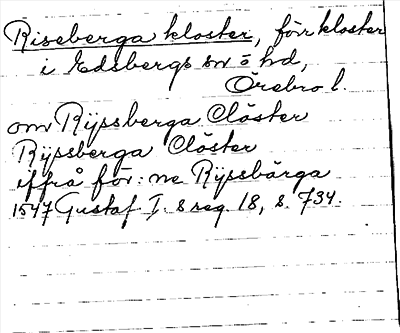 Riseberga kloster, förr kloster
i Edsbergs sn o hd,
Örebro l.
om Rijsberga Clöster
Rijsberga Clöster
iffrå för: ne Rijsbärga
1547 Gustaf I. s reg. 18, s. 734.